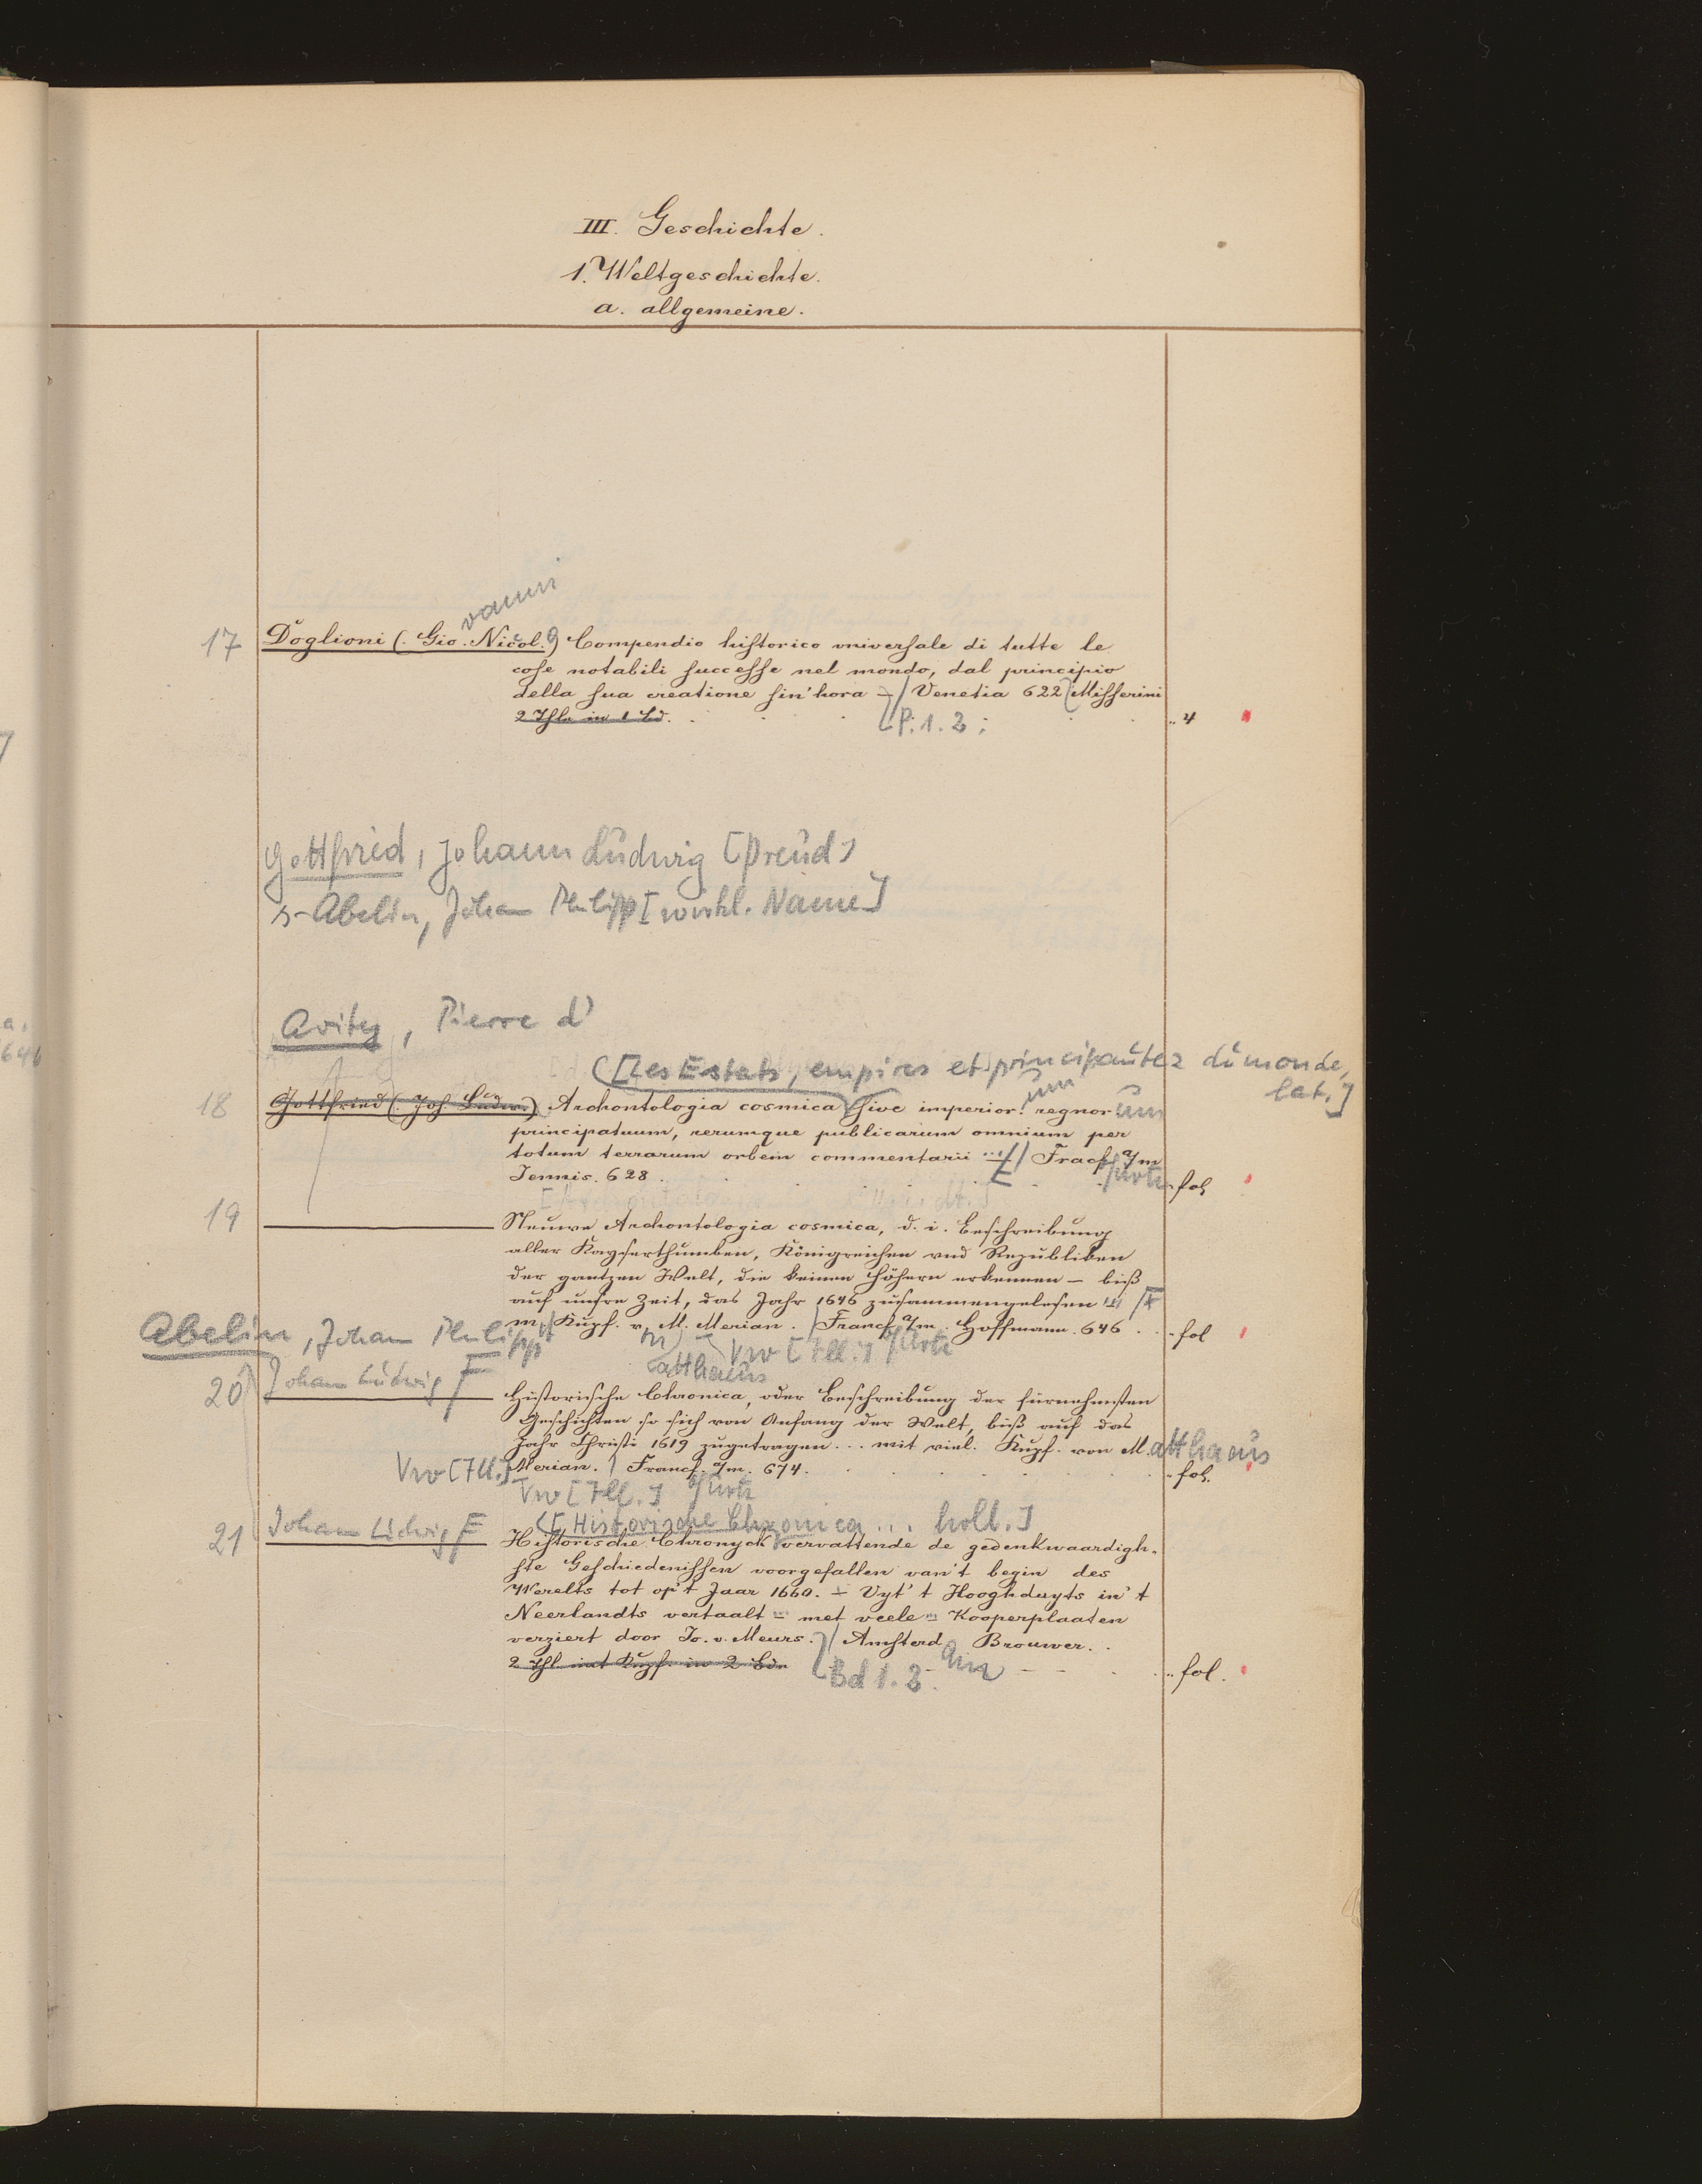 III. Geschichte.
1. Weltgeschichte.
a. allgemeine.
vanni
17 Doglioni (: Gio. Nicol.) Compendio historico vniversale di tutte le
cose notabili successe nel mondo, dal principio
della sua creatione sin'hora – / Venetia 622 (Misserini
2 Thle in 1 Bd. [P. 1. 2: .. 4
Gottfried, Johann Ludwig [Pseud.]
s. Abelin, Johan Philipp [wirkl. Name]
Avity, Pierre d'
([Les Estats, empires et principautez du monde,
lat.]
um
18 Gottfried (: Joh. Ludw.) Archontologia cosmica sive imperior. regnorum
principatuum, rerumque publicarum omnium per
totum terrarum orbem commentarii ... / Fracf. a/m
furti
Jennis. 628. fol.
19 Neuwe Archontologia cosmica, d. i. Beschreibung
aller Kayserthumben, Königreichen vnd Republiken
der gantzen Welt, die keinen Höhern erkennen – biß
auf unsre Zeit, das Jahr 1646 zusammengelesen
m. Kupf. v. M. Merian. / Francf. a/m. Hoffmann. 646. fol
Abelin, Johan Philipp
atthaeus Vw [Ill.] furti
20 Johan Ludwig
Historische Chronica, oder Beschreibung der fürnehmsten
Geschichten so sich von Anfang der Welt, biß auf das
Jahr Christi 1619 zugetragen ... mit viel. Kupf. von M.atthaeus
Vw [Ill.] Merian. / Francf. a/m. 674. fol.
Vw [Ill.] furti
([Historische Chronica ... holl.]
21 Johan Ludwig Historische Chronyck vervattende de gedenkwaardigh-
ste Geschiedenissen voorgefallen van't begin des
Werelts tot op't Jaar 1660. – Uyt't Hooghduyts in't
Neerlandts vertaalt – met veele – Kooperplaaten
verziert door Jo. v. Meurs. / Amsterd. Brouwer. .
am
2 Thl. mit Kupf. in 2 Bdn [Bd 1. 2. fol.